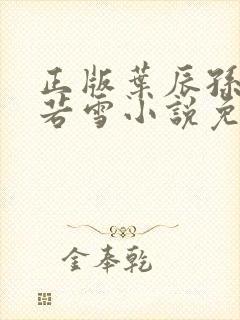 正版葉辰孫
若雪小說免
金奉乾